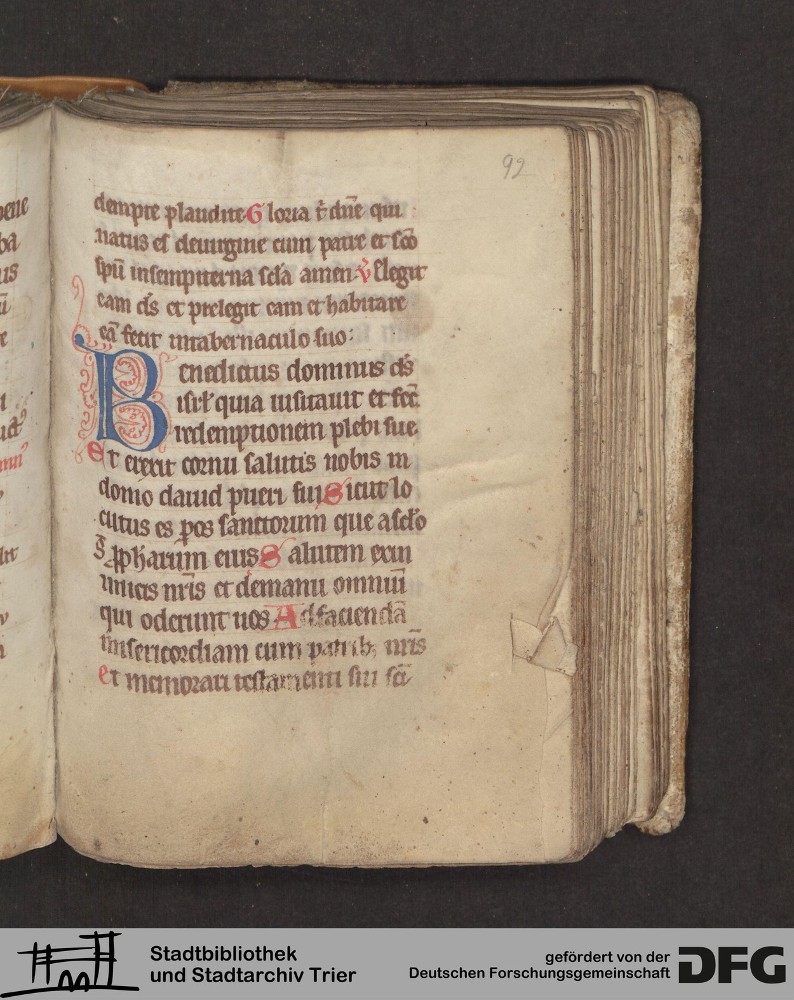 92
dempte plaudite Gloria t̄ dn̄e qui
natus es deuirgine cum patre et sc̄o
sp̄u insempiterna sc̄la amen v̄ Elegit
eam d̄s et prelegit eam et habitare
eā fecit intabernaculo suo:
Benedictus dominus d̄s
isrł quia uisitauit et fec̄
redemptionem plebi sue
Et erexit cornu salutis nobis in
domo dauid pueri sui Sicut lo
cutus es p os sanctorum que asclo
s pph̄arum eius Salutem exin
imicis nr̄is et demanu omniū
qui oderunt nos Ad faciendā
misericordiam cum patrib; nr̄is
Et memorari testamenti sui sc̄i
ba
us
Stadtbibliothek
und Stadtarchiv Trier
gefördert von der
Deutschen Forschungsgemeinschaft
DFG